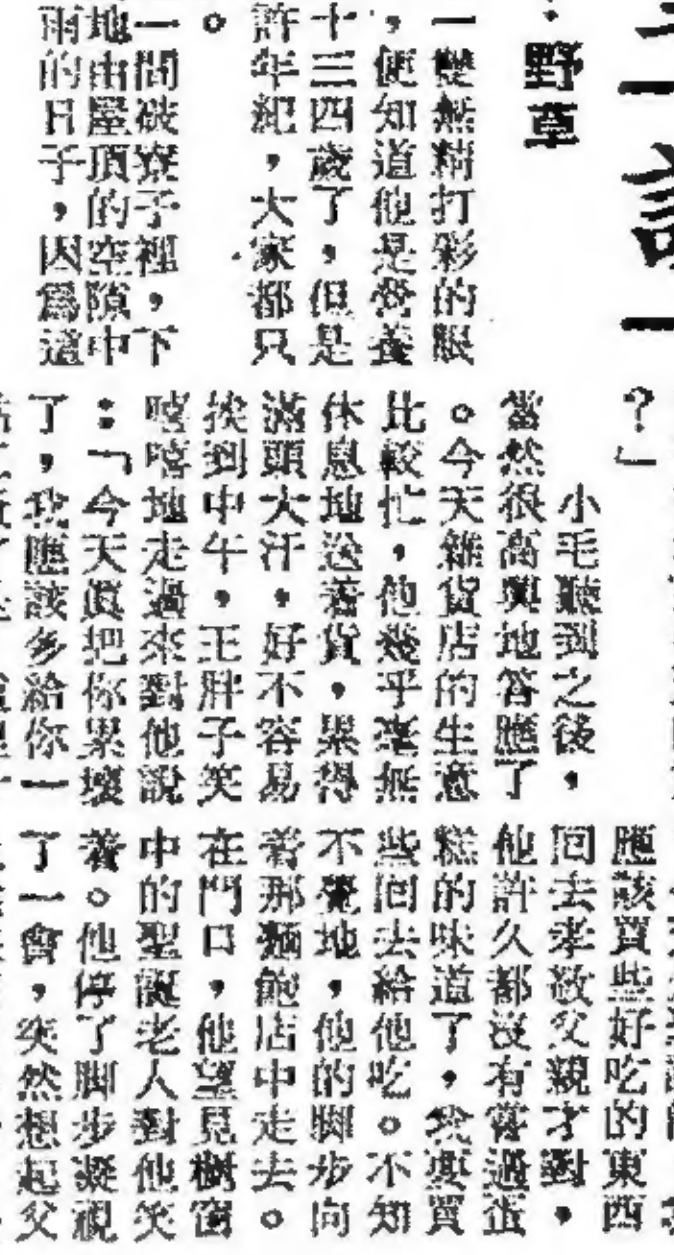 ・野草
一雙無精打彩的眼
，便知道他是營養
十三四歲了，但是
許年紀，大家都只
。
一間破寮子裡，下
地由屋頂的空隙中
雨的日子，因爲這
？」
小毛聽到之後，
當然很高興地答應了
。今天雜貨店的生意
比較忙，他幾乎毫無
休息地送着貨，累得
滿頭大汗，好不容易
挨到中午，王胖子笑
嘻嘻地走過來對他說
：「今天眞把你累壞
了，我應該多給你一
應該買些好吃的東西
回去孝敬父親才對，
他許久都沒有嘗過蛋
糕的味道了，我要買
些回去給他吃。不知
不覺地，他的脚步向
着那麵飽店中走去。
在門口，他望見樹窗
中的聖誕老人對他笑
着。他停了脚步凝視
了一會，突然想起父